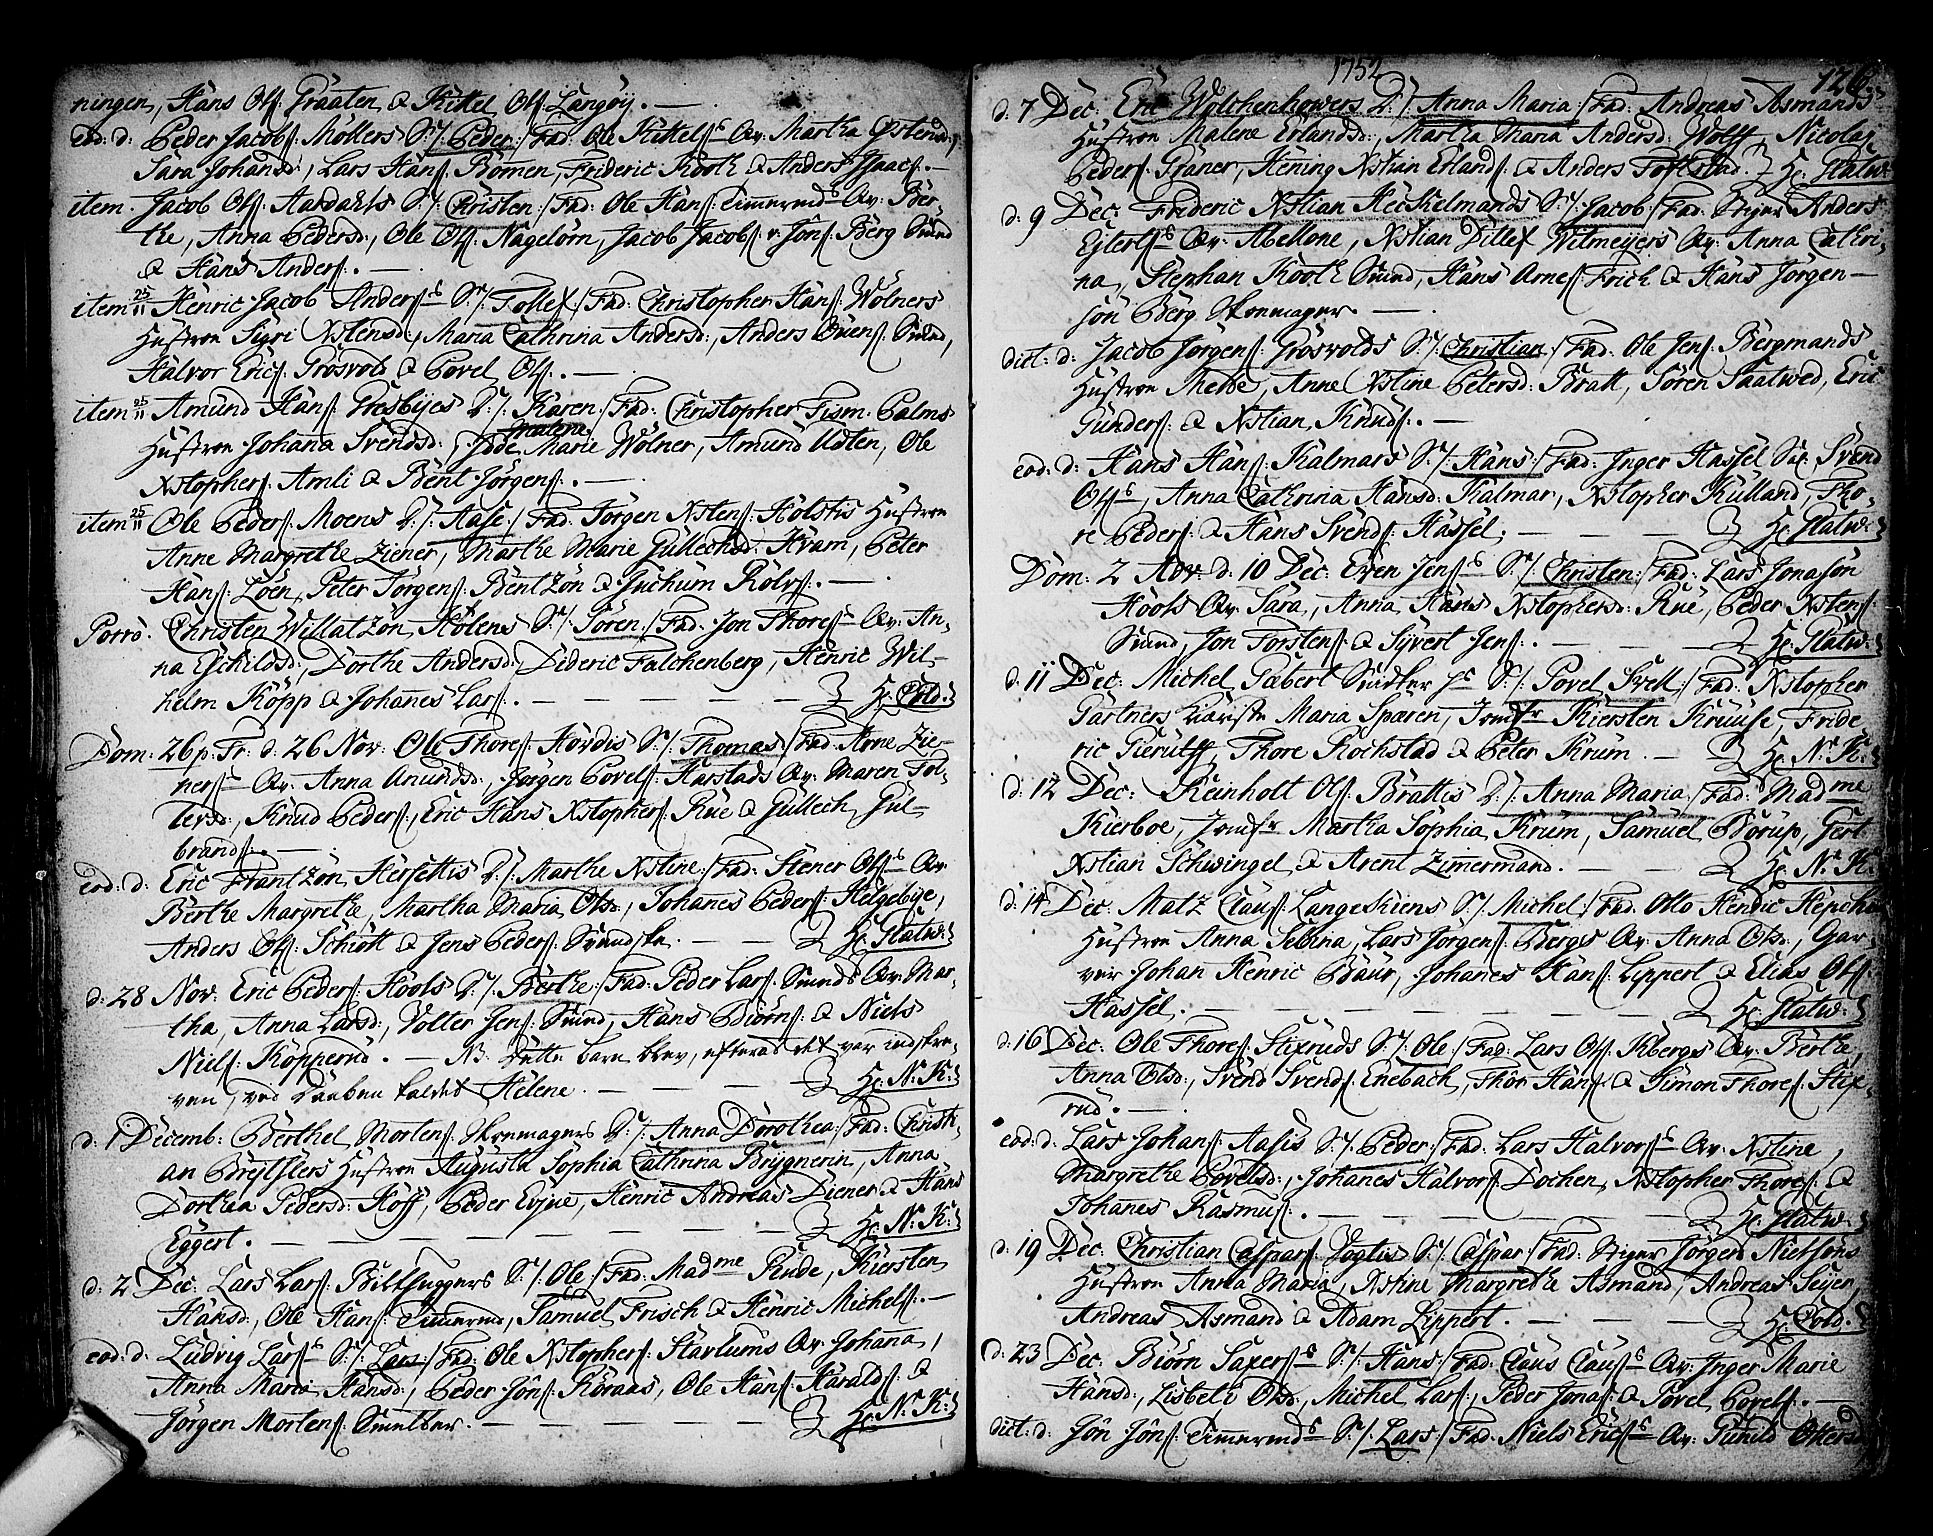 ningen, Hans Ols: Graaten & Kittel Ols: Langöÿ. —
eod: d: Peder Jacobs: Möllers S:/: Peder:/ Fad: Ole Kittels:s Qv: Martha
Sara Johansd:, Lars Hans: Bömen, Frideric Kooth & Anders Isaacs:. —
item. Jacob Ols: Aardahls S:/: Christen:/ Fad: Ole Hans: Timermds Qv: Ber-
the, Anna Pedersd:, Ole Ols: Nagelörn, Jacob Jacobs: & Jöns: Berg Smed
& Hans Anders:. —
item 25/11 Henric Jacob Anders:s S:/: Tollef:/ Fad: Christopher Hans: Wölners
Hustroe Sigri Xstensd:, Maria Cathrina Andersd:, Anders Evens: Smed,
Halvor Erics: Prösvold & Povel Ols:. —
item 25/11 Amund Hans: Gresbÿes D:/: Karen Malene:/ Fad: Christopher Tism: Palms
Hustroe Johana Svendsd:, Idde Marie Wölner, Amund Udten, Ole
Xstophers: Amli & Bent Jörgens:. —
item 25/11 Ole Peders: Moens D:/: Aase:/ Fad: Jörgen Xstens: Holstis Hustroe
Anne Margrethe Ziener, Marthe Marie Gullechsd: Kvam, Peter
Hans: Loen, Peter Jörgens: Bentzön & Guthum Rolvs:. —
Porro. Christen Willatzön Holens S:/: Sören:/ Fad: Jon Thores:s Qv: An-
na Eschildsd:, Dorthe Andersd:, Dideric Falchenberg, Henric Wil-
helm Köpp & Johanes Lars:. — — — — Hr: Cold.
Dom: 26 p. Tr: d: 26 Nov: Ole Thores: Hordis S:/: Thomas:/ Fad: Arne Zie-
ners:s Qv: Anna Amundsd:, Jörgen Povels: Harstads Qv: Maren Tol-
lersd:, Knud Peders:, Eric Hans Xstophers: Rue & Gullech Gul-
brands:. —
eod: d: Eric Frantzön Hersettis D:/: Marthe Xstine:/ Fad: Stener Ols:s Qv:
Berthe Margrethe, Martha Maria Olsd:, Johanes Peders: Helgebÿe,
Anders Ols: Schiött & Jens Peders: Svendske. — — Hr: Flatw:
d: 28 Nov: Eric Peders: Hools D:/: Berthe:/ Fad: Peder Lars: Smeds Qv: Mar-
tha, Anna Larsd:, Volter Jens: Smed, Hans Biörns: & Niels
Niels: Kopperud. — NB: Dette barn blev, efterat det var indskre-
ven, ved Daaben kaldet Helene. — — — Hr: N: K:
d: 1 Decemb: Berthel Mortens: Skoemagers D:/: Anna Dorothea:/ Fad: Christi-
an Breÿtslers Hustroe Augusta Sophia Cathrina Brügnerin, Anna
Dorthea Pedersd: Hoff, Peder Evjue, Henric Andreas Diener & Hans
Eggert. — — — — — Hr: N: K:
d: 2 Dec: Lars Lars: Biltsuggers S:/: Ole:/ Fad: Madme Rude, Kiersten
Hansd:, Ole Hans: Timermd, Samuel Frisch & Henric Michels:. —
eod: d: Ludvig Lars:s S:/: Lars:/ Fad: Ole Xstophers: Starlums Qv: Johana,
Anna Maria Hansd:, Peder Jöns: Röraas, Ole Hans: Haralds: &
Jörgen Mortens: Smelter. — — — — Hr: N: K:
1752
126.
d: 7 Dec: Eric Wolchenhowers D:/: Anna Maria:/ Fad: Andreas Asmands
Hustroe Malene Erlandsd:, Martha Maria Andersd: Wolff, Nicolai
Peders: Graner, Hening Xstian Erlands: & Anders Tofstad. Hr: Flatw:
d: 9 Dec: Frideric Xstian Heckelmands S:/: Jacob:/ Fad: Stiger Anders
Eylerts:s Qv: Abellone, Xstian Ditlef Witmeÿers Qv: Anna Cathri-
na, Stephan Kooth Smed, Hans Arnes: Frich & Hans Jörgen-
sön Berg Skoemager. —
dict: d: Jacob Jörgens: Grösvolds S:/: Christian:/ Fad: Ole Jens: Bergmands
Hustroe Mette, Anne Xstine Petersd: Bratt, Sören Saatwed, Eric
Gunders: & Xstian Knuds:. —
eod: d: Hans Hans: Kalmars S:/: Hans:/ Fad: Inger Hassel Svend
Ols:s, Anna Cathrina Hansd: Kalmar, Xstopher Kulland, Tho-
re Peders: & Hans Svends: Hassel. — — — Hr: Flatw:
Dom: 2 Adv: d: 10 Dec: Even Jens:s S:/: Christen:/ Fad: Lars Jonasön
Hools Qv: Sara, Anna Hans Xstophersd: Rue, Peder Xstens:
Smed, Jon Torstens: & Sÿvert Jens:. — — — Hr: Flatw:
d: 11 Dec: Michel Tabert S:/: Povel Svell:/ Fad: Xstopher
Gartners Kiærste Maria Sparen, Jomfr Kiersten Kruuse, Fride
ric Gierulff, Thore Rochstad & Peter Krum. — — Hr: N: K:
d: 12 Dec: Reinholt Ols: Brattis D:/: Anna Maria:/ Fad: Madme
Kierboe, Jomfr Martha Sophia Krum, Samuel Borup, Gert
Xstian Schwingel & Arent Zimermand. — — Hr: N: K:
d: 14 Dec: Matz Claus: Langeskiens S:/: Michel:/ Fad: Otto Hendric
Hustroe Anna Sebina, Lars Jörgens: Berges Qv: Anna Olsd:, Gar-
ver Johan Henric Baur, Johanes Hans: Lippert & Elias Ols:
Hassel. — — — — — — Hr: Flatw:
d: 16 Dec: Ole Thores: Stixruds S:/: Ole:/ Fad: Lars Ols: Kbergs Qv: Berthe,
Anna Olsd:, Svend Svends: Enebach, Thor Hans: & Simon Thores: Stix-
rud. —
eod: d: Lars Johans: Aasis S:/: Peder:/ Fad: Lars Halvors:s Qv: Xstine,
Margrethe Povelsd:, Johanes Halvors: Dochen, Xstopher Thores: &
Johanes Rasmus:. — — — — — Hr: Flatw:
d: 19 Dec: Christian Caspars: Vogtis S:/: Caspar:/ Fad: Stiger Jörgen Nielsöns
Hustroe Anna Maria, Xstine Margrethe Asmand, Andreas Seyer,
Andreas Asmand & Adam Lippert. — — — Hr: Cold.
d: 23 Dec: Biörn Saxers:s S:/: Hans:/ Fad: Claus Claus:s Qv: Inger Marie
Hansd:, Lisbeth Olsd:, Michel Lars:, Peder Jonas: & Povel Povels:. —
dict: d: Jön Jöns: Timermds S:/: Lars:/ Fad: Niels Erics:s Qv: Gunild Ottersd: